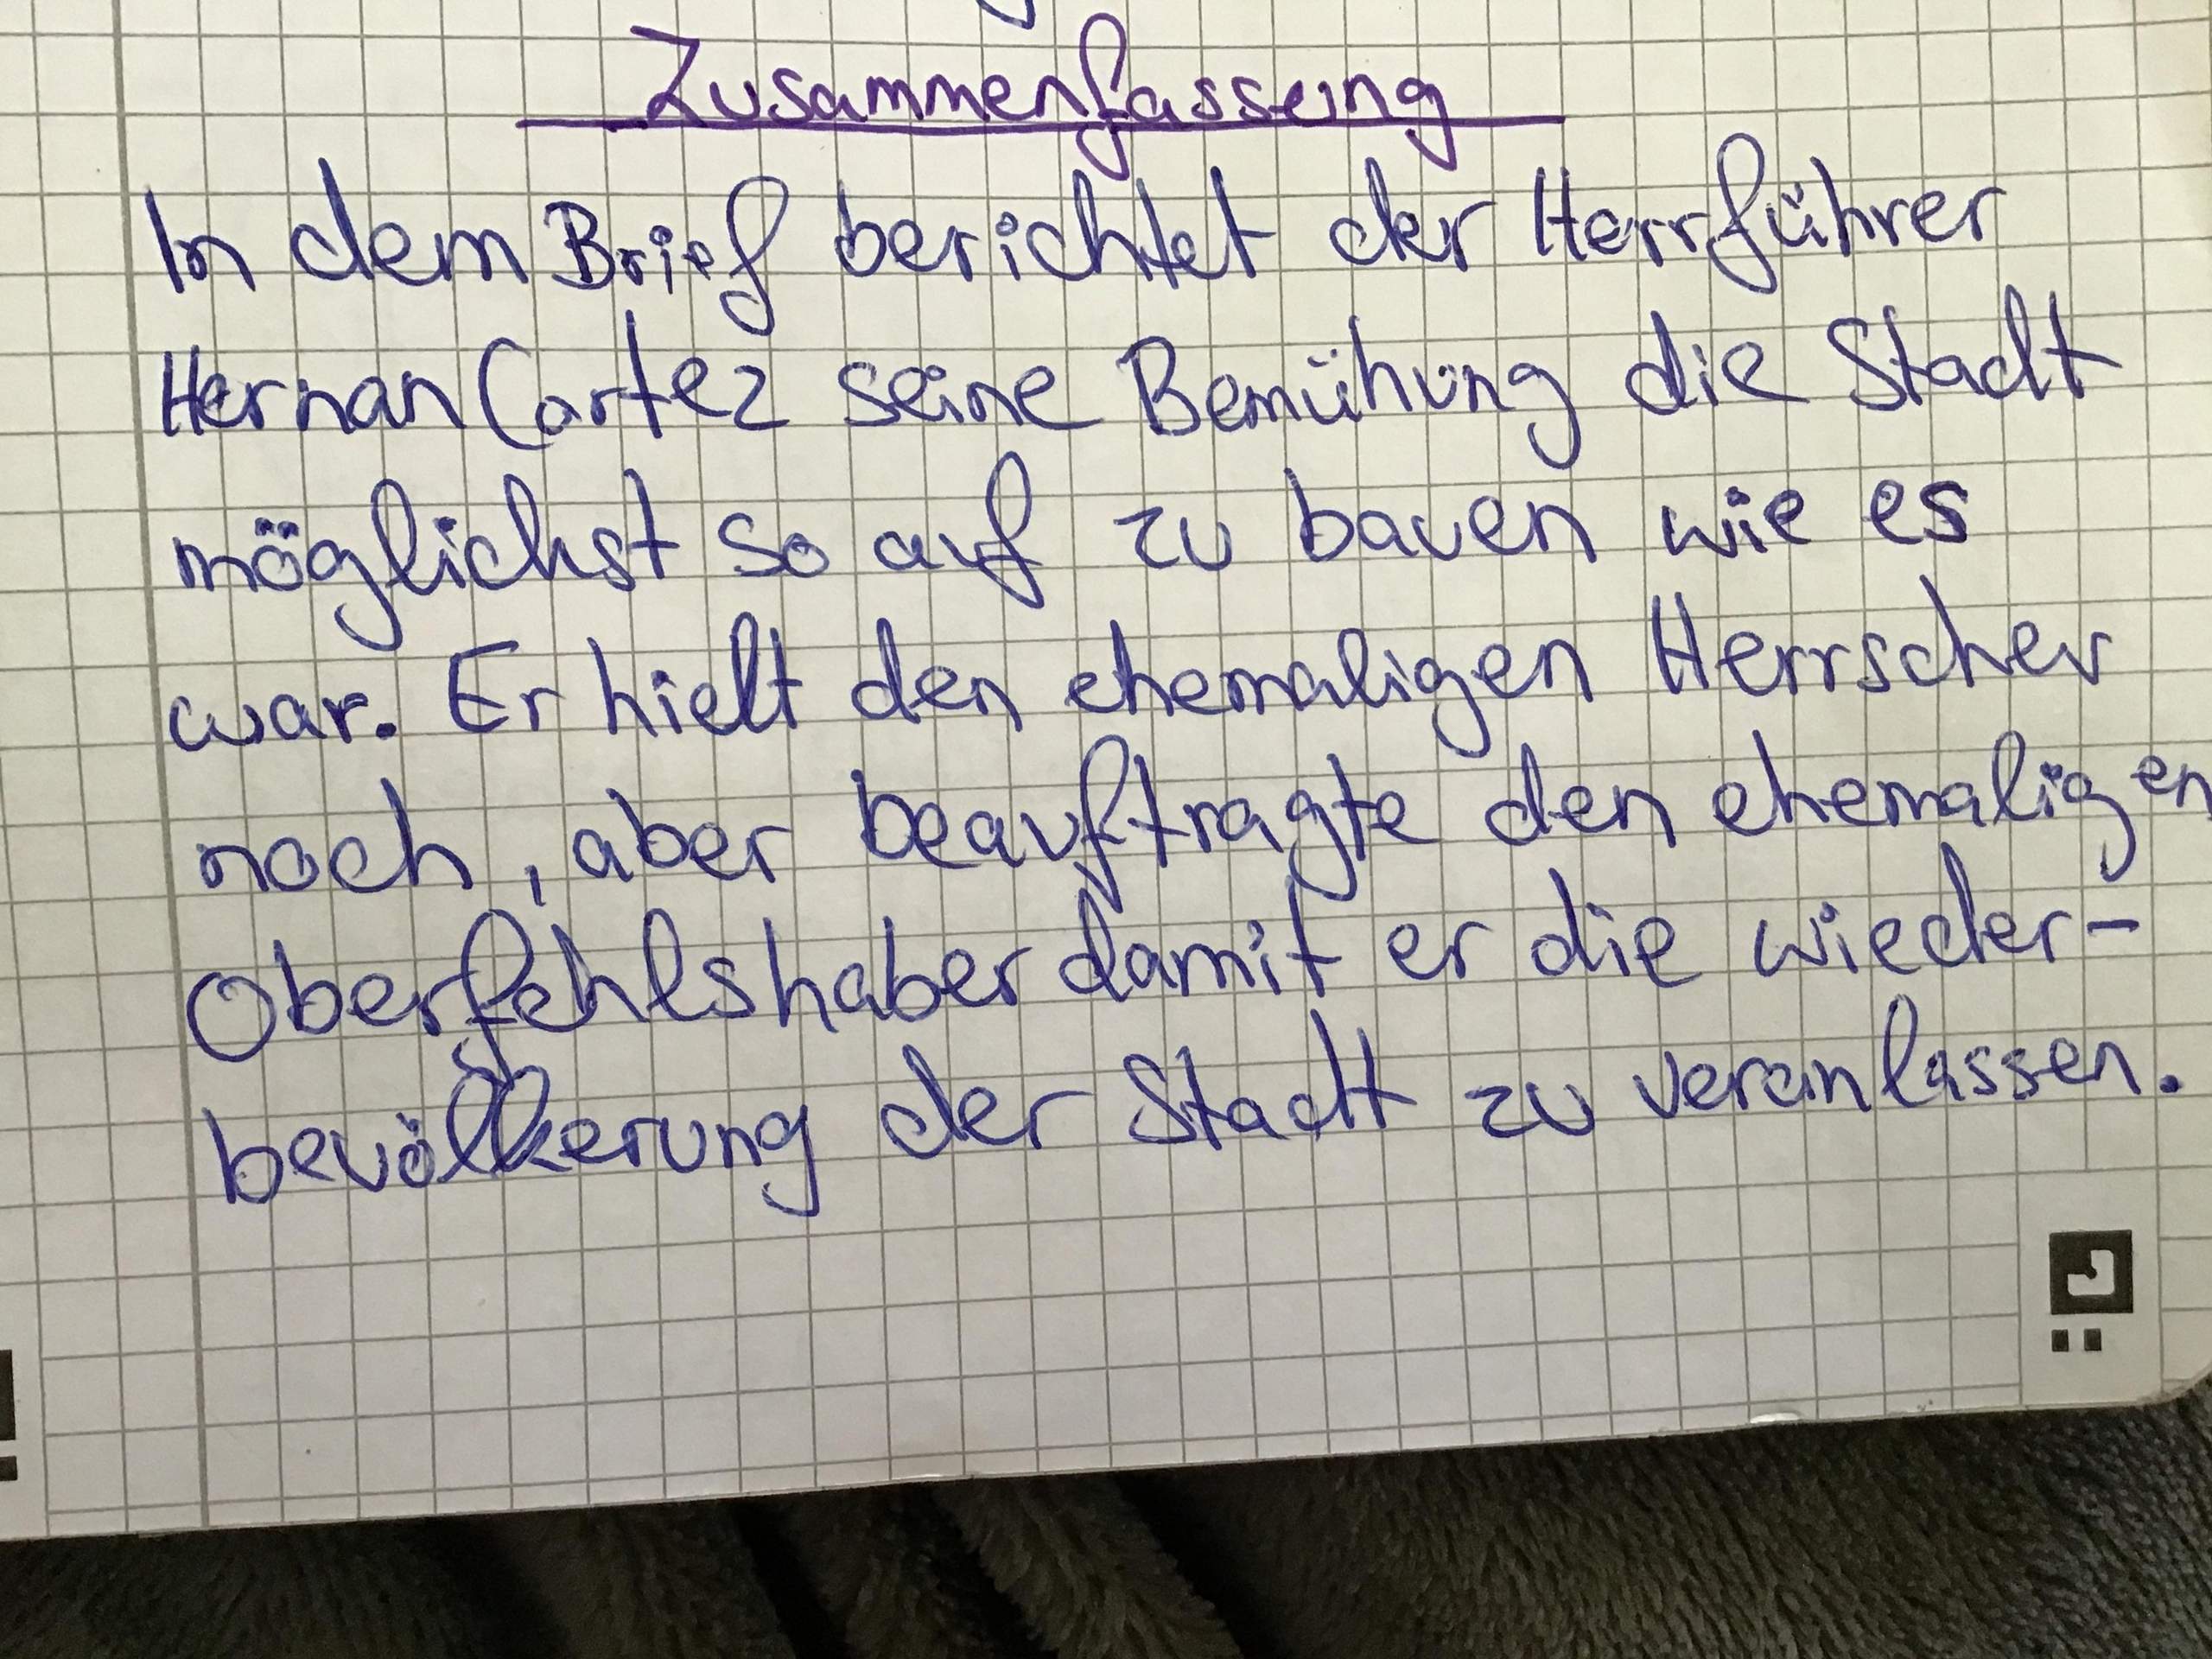 Zusammenfassung
In dem Brief berichtet der Herrführer
Hernan Cortez seine Bemühung die Stadt
möglichst so auf zu bauen wie es
war. Er hielt den ehemaligen Herrscher
noch, aber beauftragte den ehemaligen
Oberfehlshaber damit er die wieder-
bevölkerung der Stadt zu veranlassen.